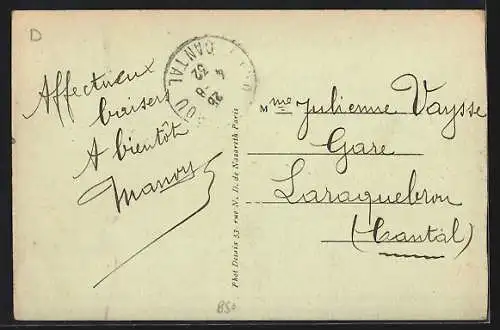 D
Affectueux
baisers
A bientôt
Manon
CANTAL
26-8
32
Mme Julienne Vaysse
Gare
Laraquebrou
(Cantal)
Phot Desrix 53 rue N. D. de Nazareth Paris
B50